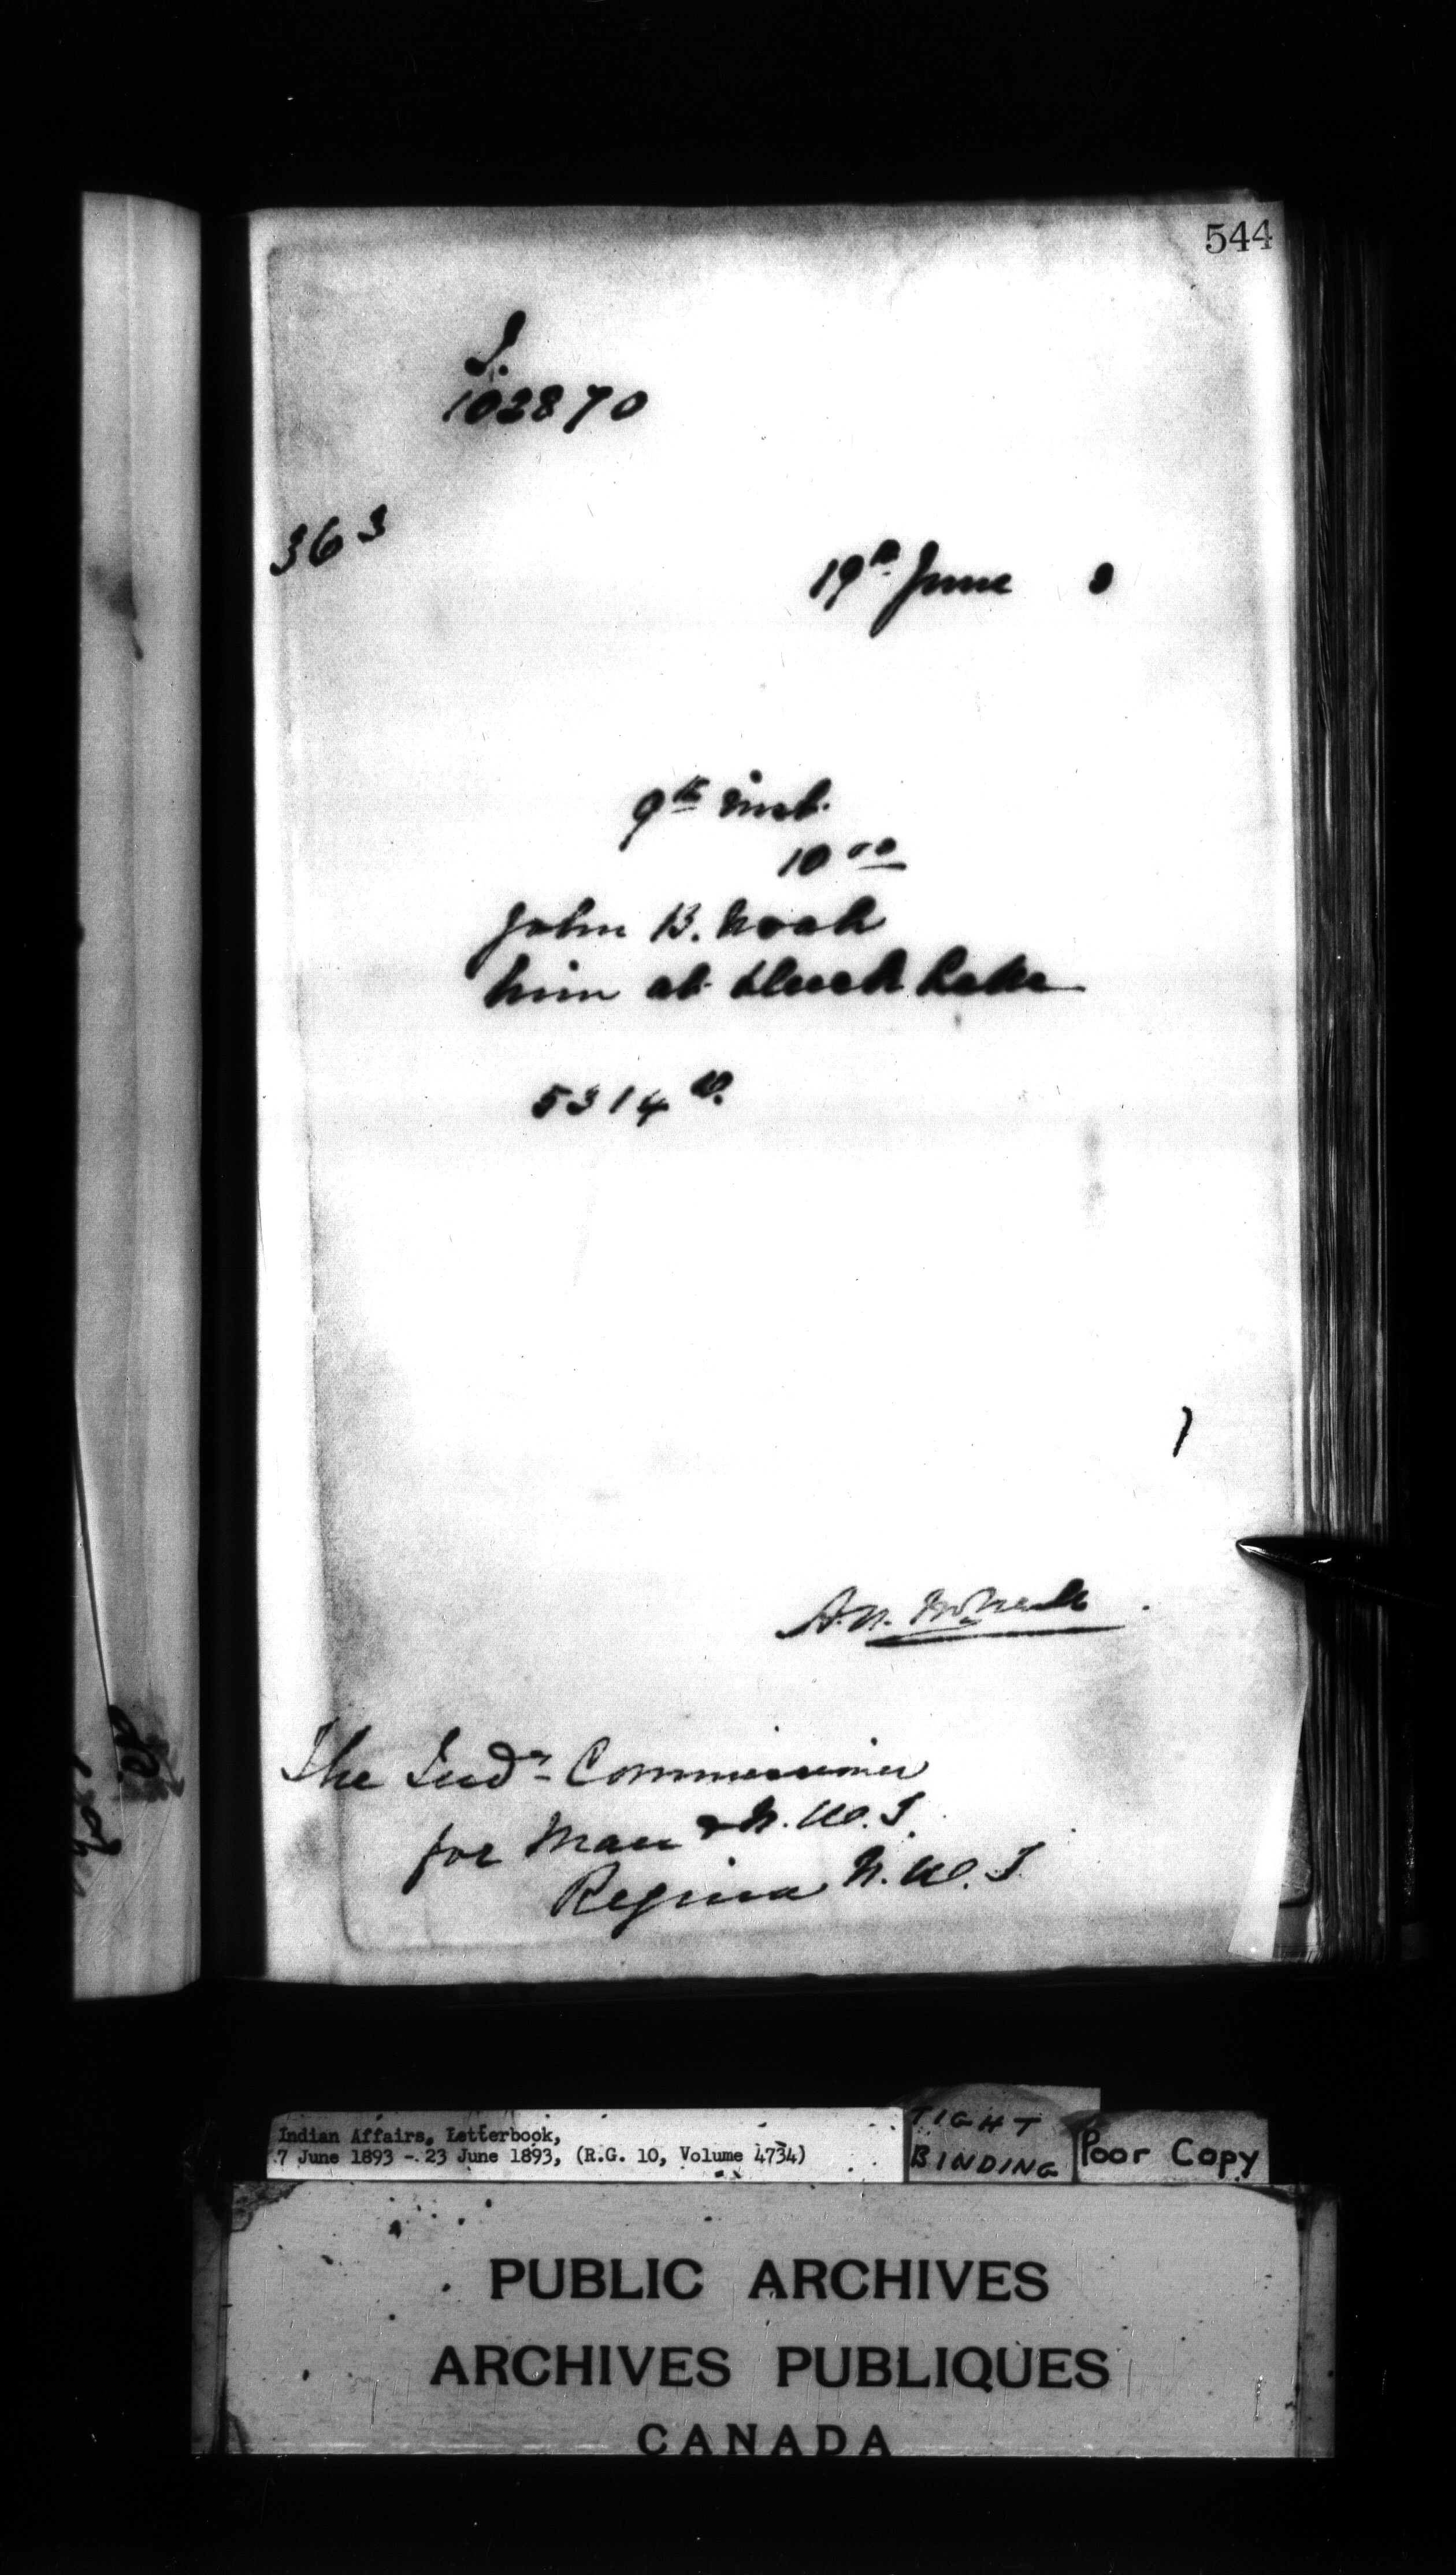 544
S.
102870
363
19th June 3
9th inst.
10 00
John B. Noah
him at Duck Lake
5314 W.
The Indn Commissioner
for Man & N.W.T.
Regina N.W.T.
Indian Affairs, Letterbook,
7 June 1893 - 23 June 1893, (R.G. 10, Volume 4734)
TIGHT
BINDING
Poor Copy
PUBLIC ARCHIVES
ARCHIVES PUBLIQUES
CANADA